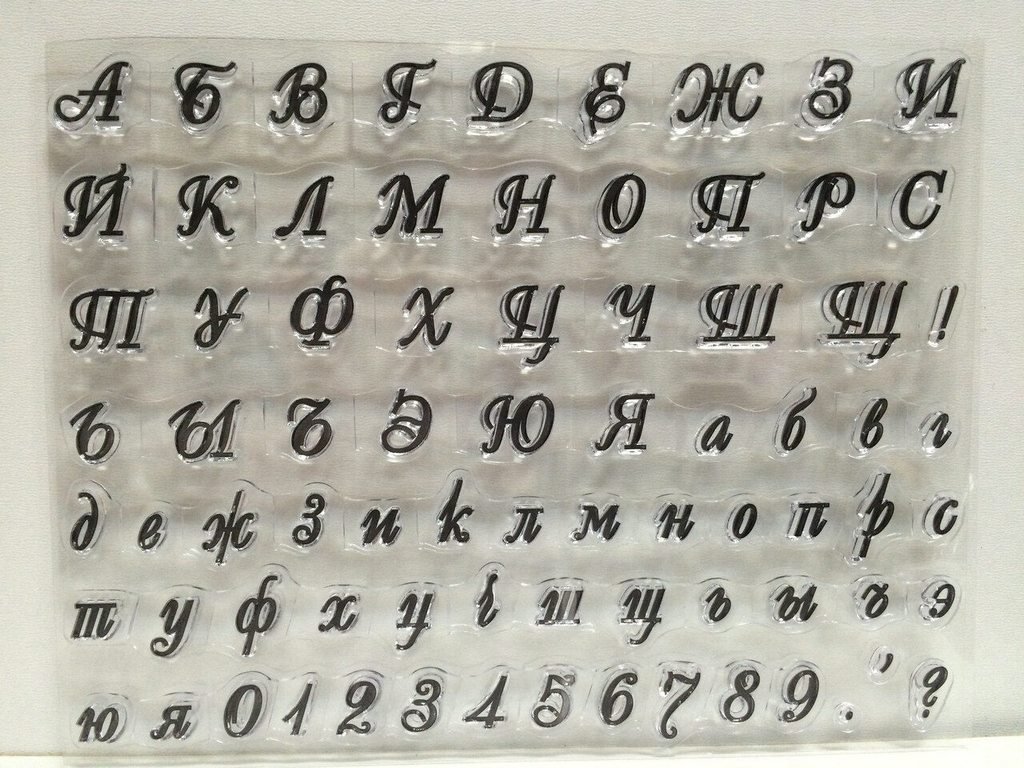 А Б В Г Д Е Ж З И
Й К Л М Н О П Р С
Т У Ф Х Ц Ч Ш Щ !
Ь Ы Ъ Э Ю Я а б в г
д е ж з и к л м н о п р с
т у ф х ц ч ш щ ь ы ъ э
ю я 0 1 2 3 4 5 6 7 8 9 . , ?